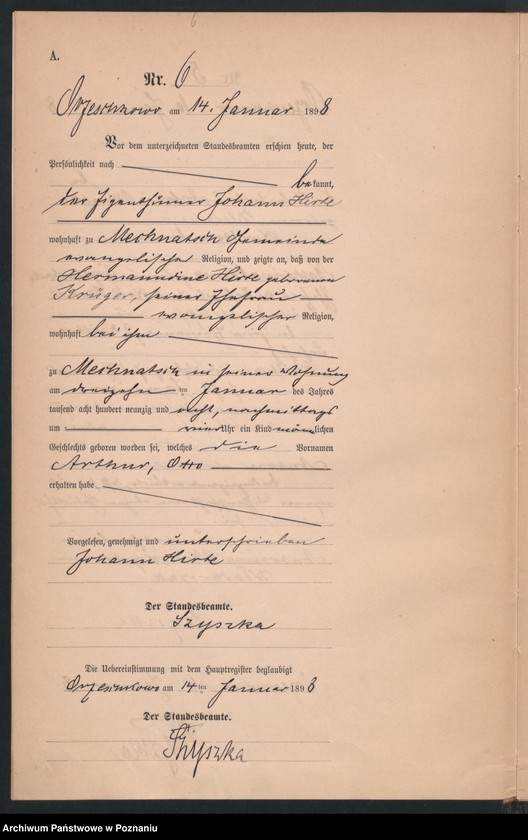 A.
Nr. 6
Orzeschkowo am 14. Januar 1898
Vor dem unterzeichneten Standesbeamten erschien heute, der
Persönlichkeit nach
bekannt,
der Eigenthümer Johann Hirte
wohnhaft zu Mechnatsch Gemeinde
evangelische Religion, und zeigte an, daß von der
Hermanndine Hirte geborenen
Krüger, seiner Ehefrau
evangelischer Religion,
wohnhaft bei ihm
zu Mechnatsch in seiner Wohnung
am dreizehn ten Januar des Jahres
tausend acht hundert neunzig und acht, nachmittags
um vier Uhr ein Kind männlichen
Geschlechts geboren worden sei, welches die Vornamen
Arthur, Otto
erhalten habe
Vorgelesen, genehmigt und unterschrieben
Johann Hirte
Der Standesbeamte.
Szyszka
Die Uebereinstimmung mit dem Hauptregister beglaubigt
Orzeschkowo am 14 ten Januar 1898
Der Standesbeamte.
Szyszka
Archiwum Państwowe w Poznaniu